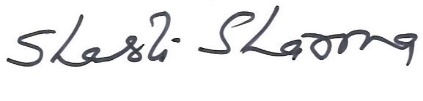 Shashi Sharma